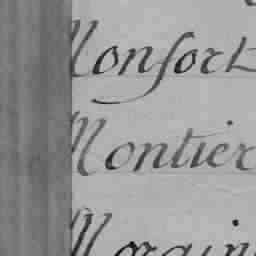 Monfort
Montier
Morain